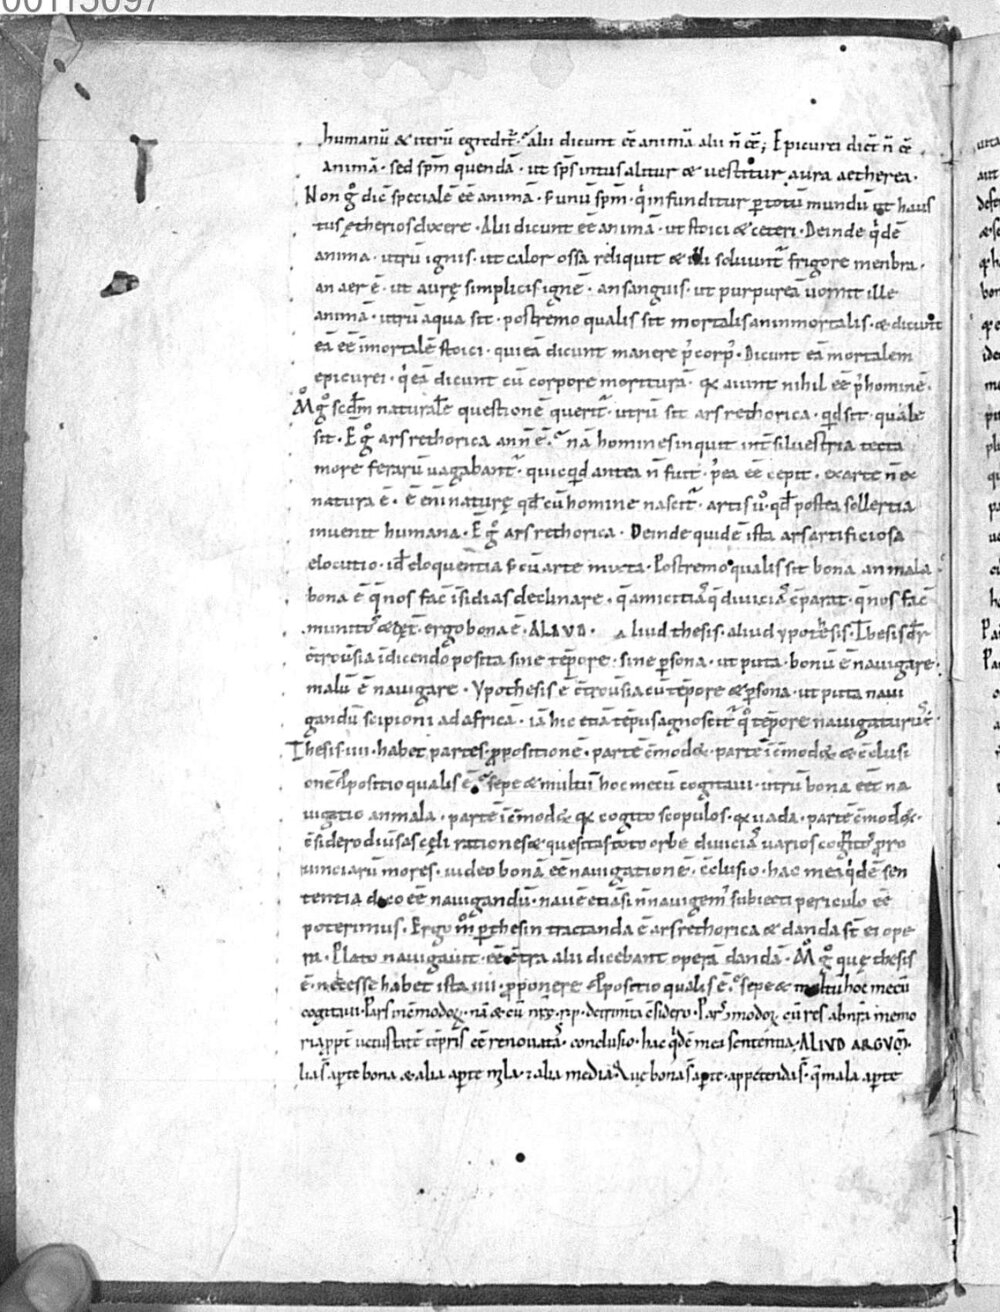 00115097
humanū & utrū egredit᷑. alii dicunt eē animā alii n̄ eē; Epicurei dic̄t n̄ eē
animā · sed spm̄ quendā · ut sp̄s intus alitur & uestitur aura aetherea ·
Non g̊ dic̄ speciale eē animā · unū spm̄ · infunditur p totū mundū ut haus
tus ętherios dixere · Alii dicunt eē animā · ut stoici & ceteri · Deinde q̇dē
anima · utrū ignis · ut calor ossa reliquit & illi soluunt᷑ frigore menbra ·
an aer ē · ut aurę simplicis ignē · an sanguis · ut purpureā uomit ille
animā · utrū aqua sit · postremo qualis sit mortalis an inmortalis · & dicunt
eā eē īmortalē stoici · qui eā dicunt manere p̓ corp̓ · Dicunt eā mortalem
epicurei · q̇ eā dicunt cū corpore moriturā · aiunt nihil eē p̓ hominē ·
g̊ scdm̄ naturalē questionē querit᷑ · utrū sit ars rethorica · qd sit · quale
sit · g̊ ars rethorica an n̄ ē · nā homines inquit int̄ siluestria tecta
more ferarū uagabant᷑ · quicqd antea n̄ fuit · p̓ea eē cepit · ex arte n̄ ex
natura ē · ē eni naturę qd̄ cū homine nascit᷑ · artis u̓ · qd̄ postea sollertia
inuenit humana · g̊ ars rethorica · Deinde quidē ista ars artificiosa
elocutio · id̄ eloquentia cū arte mixta · Postremo qualis sit bona an mala
bona ē q̄ nos fac̄ īsidias declinare · q̄ amicitiā q̄ diuiciā c̄parat · q̄ nos fac̄
munitos · ergo bona ē · ALIVD · aliud thesis · aliud ypothesis · Thesis
c̄trouersia ī dicendo posita sine tēpore · sine psona · ut puta · bonū ē nauigare ·
malū ē nauigare · Ypothesis ē c̄trouersia cū tēpore & psona · ut puta naui
gandū scipioni ad africā · iā hic etiā tēpus agnoscit᷑ tēpore nauigaturus
Thesis · iiii · habet partes · ppositionē · partē c̄moda · partē īc̄moda & c̄clusi
onē ppositio qualis ē · sepe & multū hoc mecū cogitaui · utrū bona eēt na
uigatio an mala · partē īc̄moda · cogito scopulos · uada · partē c̄moda ·
c̄sidero diuersas cęli rationes & quesitas toto orbe diuiciā uarios
uinciarū mores · uideo bonā eē nauigationē · c̄clusio · hac mea q̇dē sen
tentia dico eē nauigandū · subiecti periculo eē
poterimus · Ergo thesin tractanda ē ars rethorica & danda st̄ ei ope
ra · Plato nauigauit · eē c̄tra alii dicebant operā dandā · g̊ que thesis
ē · necesse habet ista iiii · pponere · ppositio qualis ē · sepe & multū hoc mecū
cogitaui · Pars · c̄sidero · Pars c̄modoꝝ · cū res a
uetustatē eē renouatā · conclusio · hac q̇dē mea sententia · ALIVD
alia s̄ apte bona & alia apte mala · alia media · bona s̄ apte · appetenda s̄ · mala apte